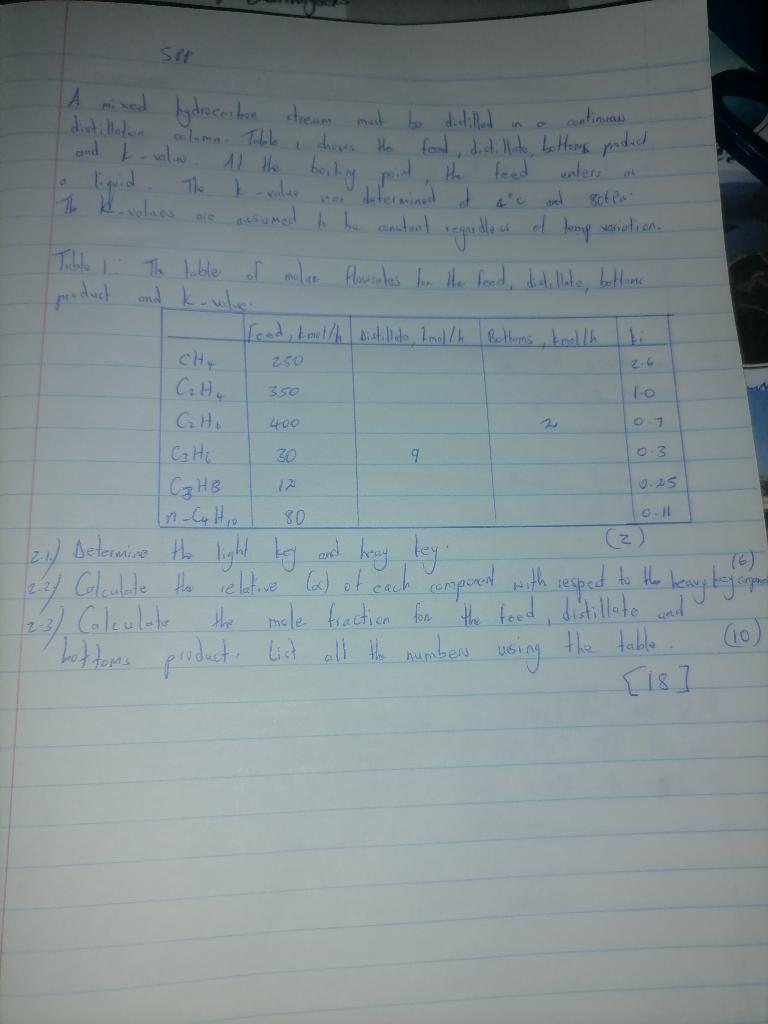 SPP
A mixed hydrocarbon stream must be distilled in a continuous
distillation column. Table 1 shows the feed, distillate, bottoms product
and k-value. At the boiling point, the feed enters as
a liquid. The k-value was determined at 4°C and 80kPa.
The K-values are assumed to be constant regardless of temp variation.
Table 1: The table of molar flowrates for the feed, distillate, bottoms
product and k-value.
Feed, kmol/h Distillate, kmol/h Bottoms, kmol/h ki
CH4 250 2.6
C2H4 350 1.0
C2H6 400 2 0.7
C3H6 30 9 0.3
C3H8 12 0.25
n-C4H10 80 0.11
2.1) Determine the light key and heavy key. (2)
2.2) Calculate the relative (α) of each component with respect to the heavy key (6)
2.3) Calculate the mole fraction for the feed, distillate and
bottoms product. List all the numbers using the table. (10)
[18]